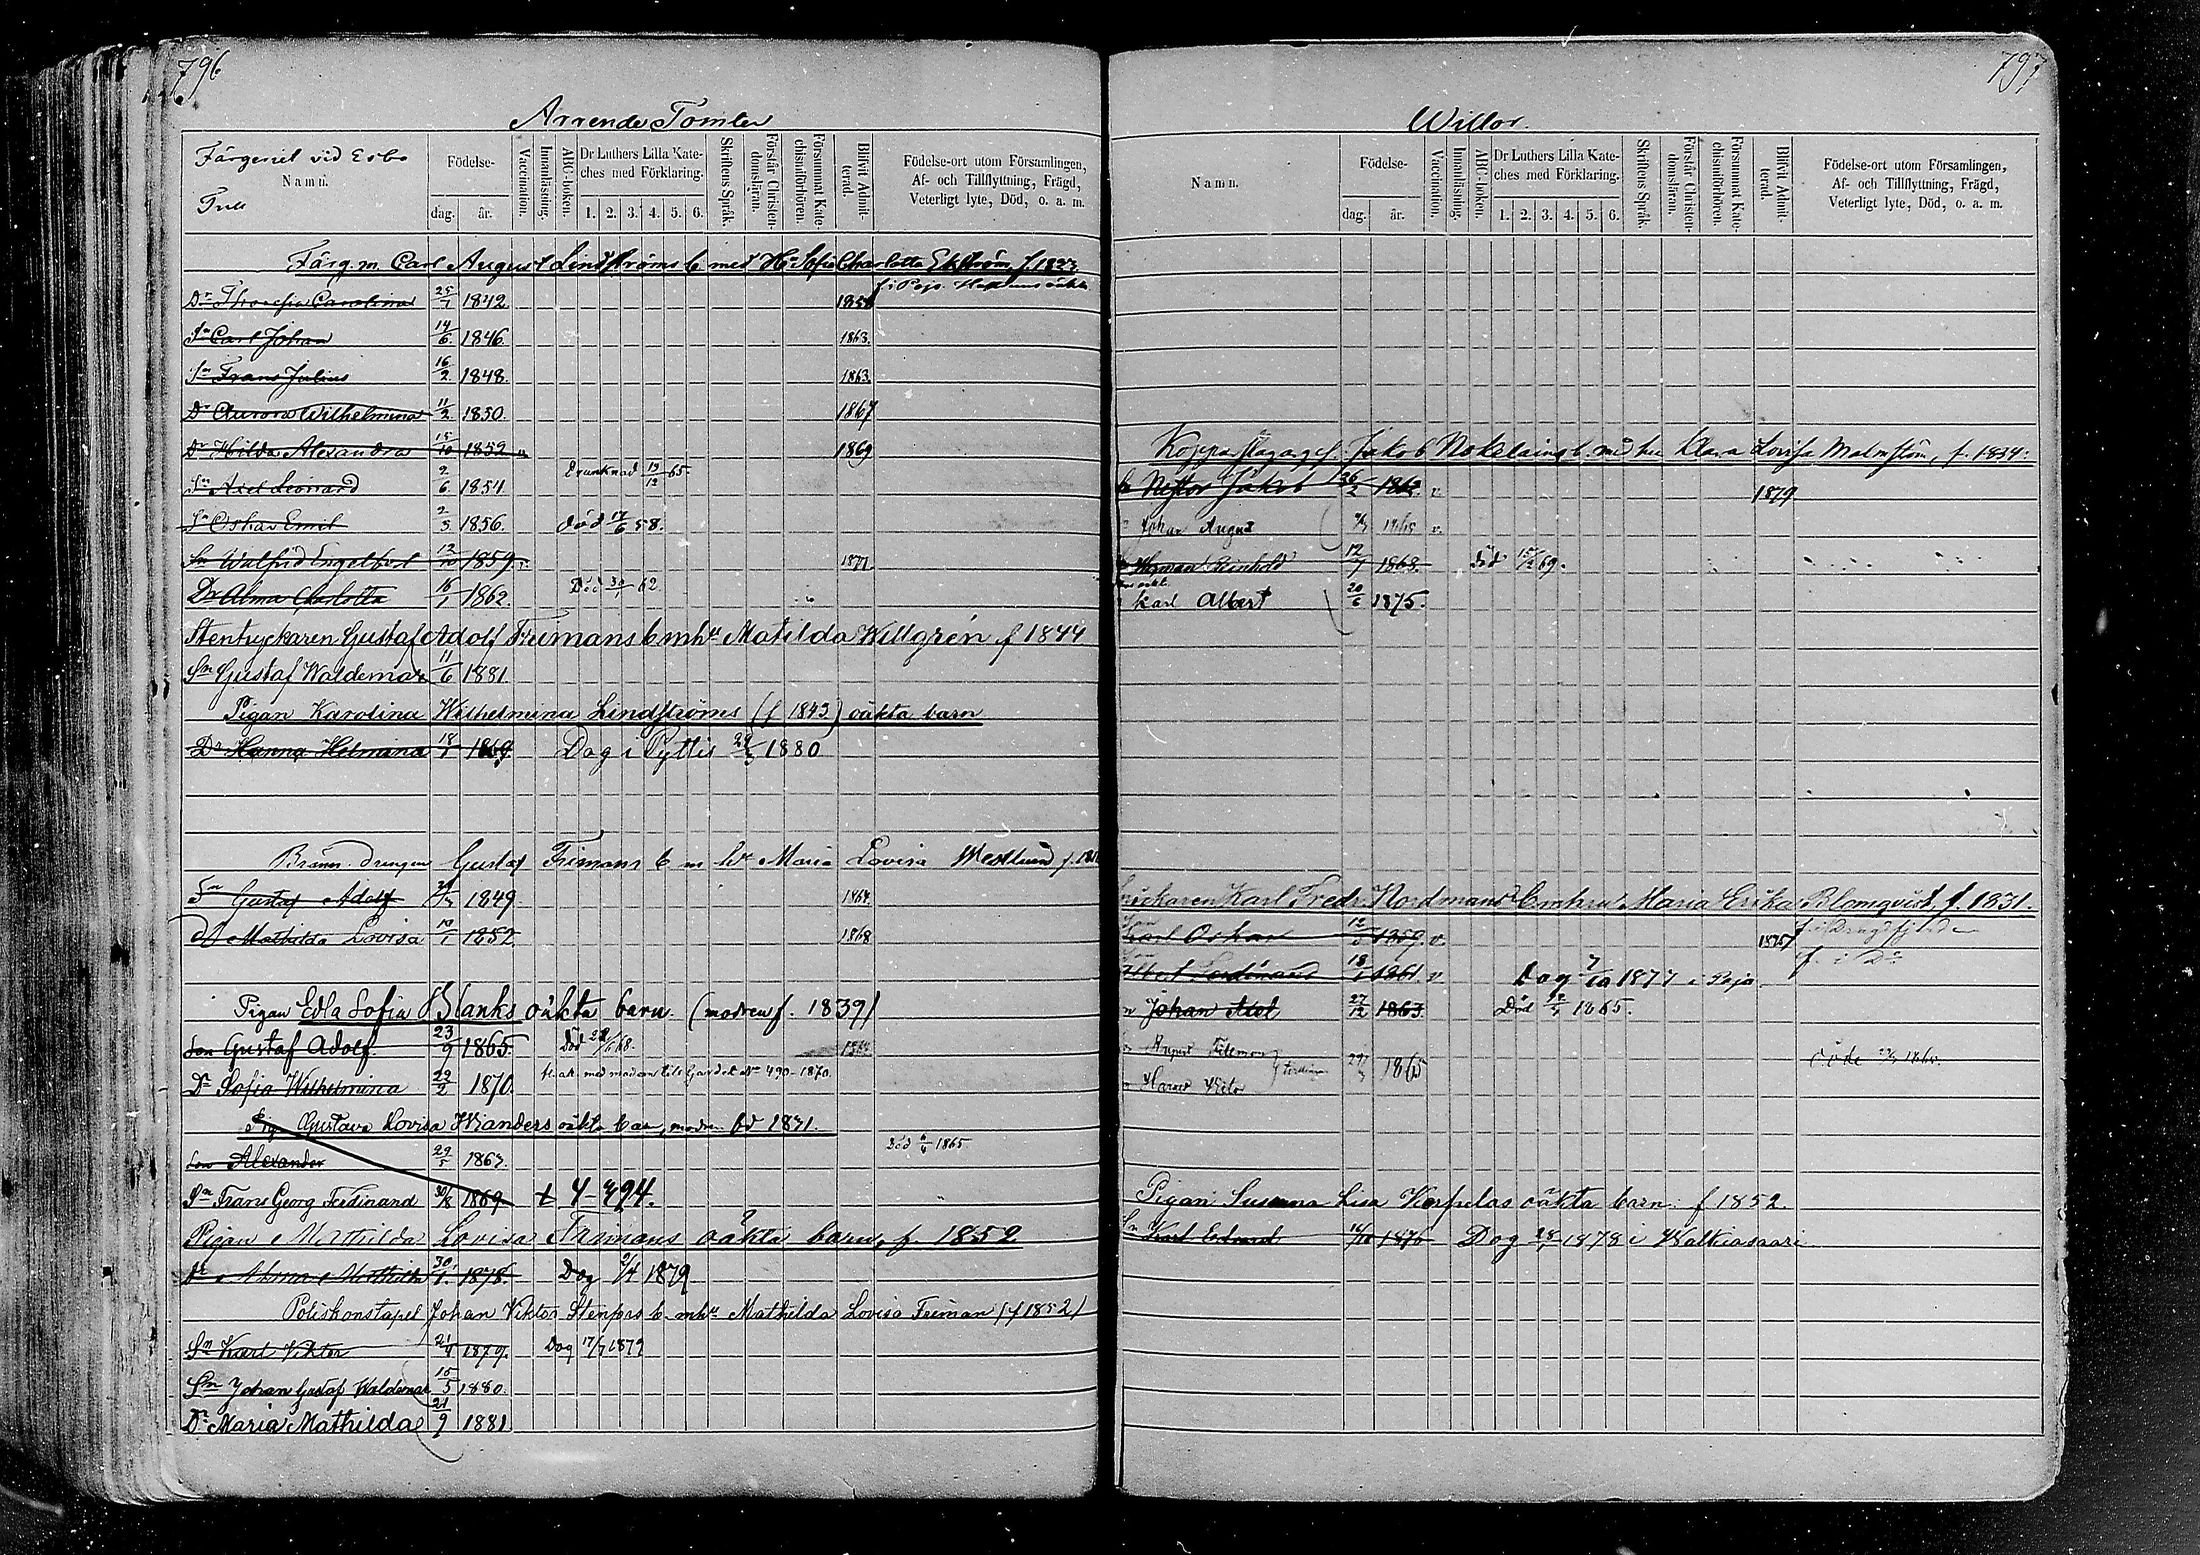 796
Arrende Tomter
Färgeriet vid Esbo
Tull
Namn.
Födelse-
dag. år.
Vaccination.
Innanläsning.
ABC-boken.
Dr Luthers Lilla Kate-
ches med Förklaring.
1. 2. 3. 4. 5. 6.
Skriftens Språk.
Förstår Christen-
domsläran.
Försummat Kate-
chismiförhören.
Blifvit Admit-
terad.
Födelse-ort utom Församlingen,
Af- och Tillflyttning, Frägd,
Veterligt lyte, Död, o. a. m.
Färg m. Carl August Lindströms b med Hu Sofia Charlotta Ekström f. 1822
Dr Theresia Carolina 25/1 1842. 1858
Sn Carl Johan 14/6 1846. 1863.
Sn Frans Julius 16/2 1848. 1863.
Dr Aurora Wilhelmina 11/2 1850. 1867
Dr Hilda Alexandra 15/10 1852 v 1869
Sn Axel Leonard 2/6 1854 Drunknad 13/12 65.
Sn Oskar Emil 2/3 1856. död 17/6 58.
Sn Walfrid Engelbert 12/10 1859. v. 1877.
Dr Alma Charlotta 16/1 1862. Död 30/1 62.
Stentryckaren Gustaf Adolf Frimans b mhu Matilda Willgrén f 1844
Sn Gustaf Waldemar 11/6 1881
Pigan Karolina Wilhelmina Lindströms (f 1843) oäkta barn
Dr Hanna Helmina 18/1 1869 Dog i Pyttis 1880
Bränn. drengen Gustaf Frimans b m hu Maria Lovisa Westlund f.
Sn Gustaf Adolf 1849. 1864.
Dr Mathilda Lovisa 10/1 1852 1868
Pigan Edla Sofia Blanks oäkta barn. (modren f. 1839)
Son Gustaf Adolf. 23/9 1865. Död 68.
Dr Sofia Wilhelmina 22/2 1870. med modren till Gardet No 490-1870.
Pig Gustava Lovisa Wianders oäkta barn, modren född 1831.
Son Alexander 29/5 1863. Död 1865
Sn Frans Georg Ferdinand 30/8 1869 t 4-494.
Pigan Mathilda Lovisa Frimans oäkta barn, f. 1852
Dr Alma Mathilda 30/1 1878. Dog 2/4 1879
Poliskonstapel Johan Viktor Stenfors b. mhu Mathilda Lovisa Friman (f 1852)
Sn Karl Viktor 21/4 1879. Dog 17/7 1879
Sn Johan Gustaf Waldemar 15/5 1880.
Dr Maria Mathilda 21/9 1881
797
Willor.
Namn.
Födelse-
dag. år.
Vaccination.
Innanläsning.
ABC-boken.
Dr Luthers Lilla Kate-
ches med Förklaring.
1. 2. 3. 4. 5. 6.
Skriftens Språk.
Förstår Christen-
domsläran.
Försummat Kate-
chismiförhören.
Blifvit Admit-
terad.
Födelse-ort utom Församlingen,
Af- och Tillflyttning, Frägd,
Veterligt lyte, Död, o. a. m.
Jakob Nokelains b. med hu Clara Lovisa Malmström, f. 1834.
Nestor Jakob 26/2 1862. v. 1879
Johan August v.
Herman Reinhold 12/7 1868. död 15/2 69.
Karl Albert 20/6 1875.
Karl Fredr. Nordmans b mhu Maria Erika Blomqvist f. 1831.
Karl Oskar 12/5 1859. v. 1875
Albert Ferdinand 18/1 1861. v Dog 7/10 1877 i Pojo
Johan Axel 27/12 1863 Död 1865.
August 1865 döde 1865.
Pigan Susanna Lisa Korpelas oäkta barn. f 1852.
Sn Karl Edvard 1876 Dog 1878 i Walkiasaari